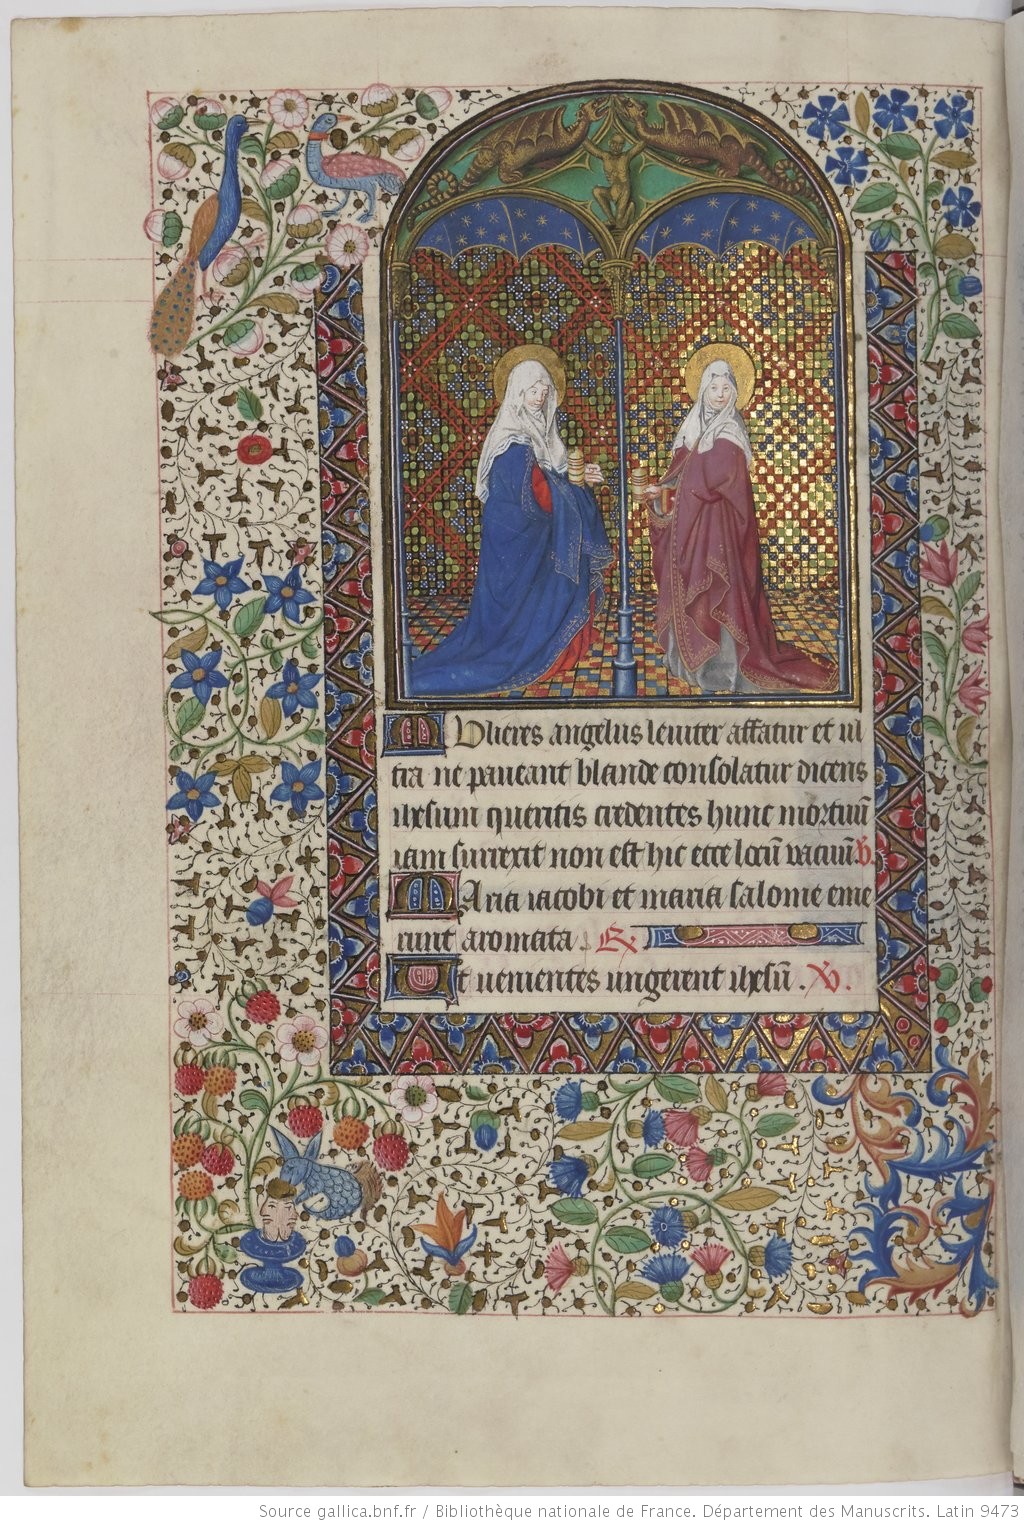 Mulieres angelus leniter affatur et ul
tra ne paueant blande consolatur dicens
ihesum queritis credentes hunc mortuũ
iam surrexit non est hic ecce locũ vacuũ. V.
Maria iacobi et maria salome eme
runt aromata R.
Ut uenientes ungerent ihesũ. Xo.
Source gallica.bnf.fr / Bibliothèque nationale de France. Département des Manuscrits. Latin 9473